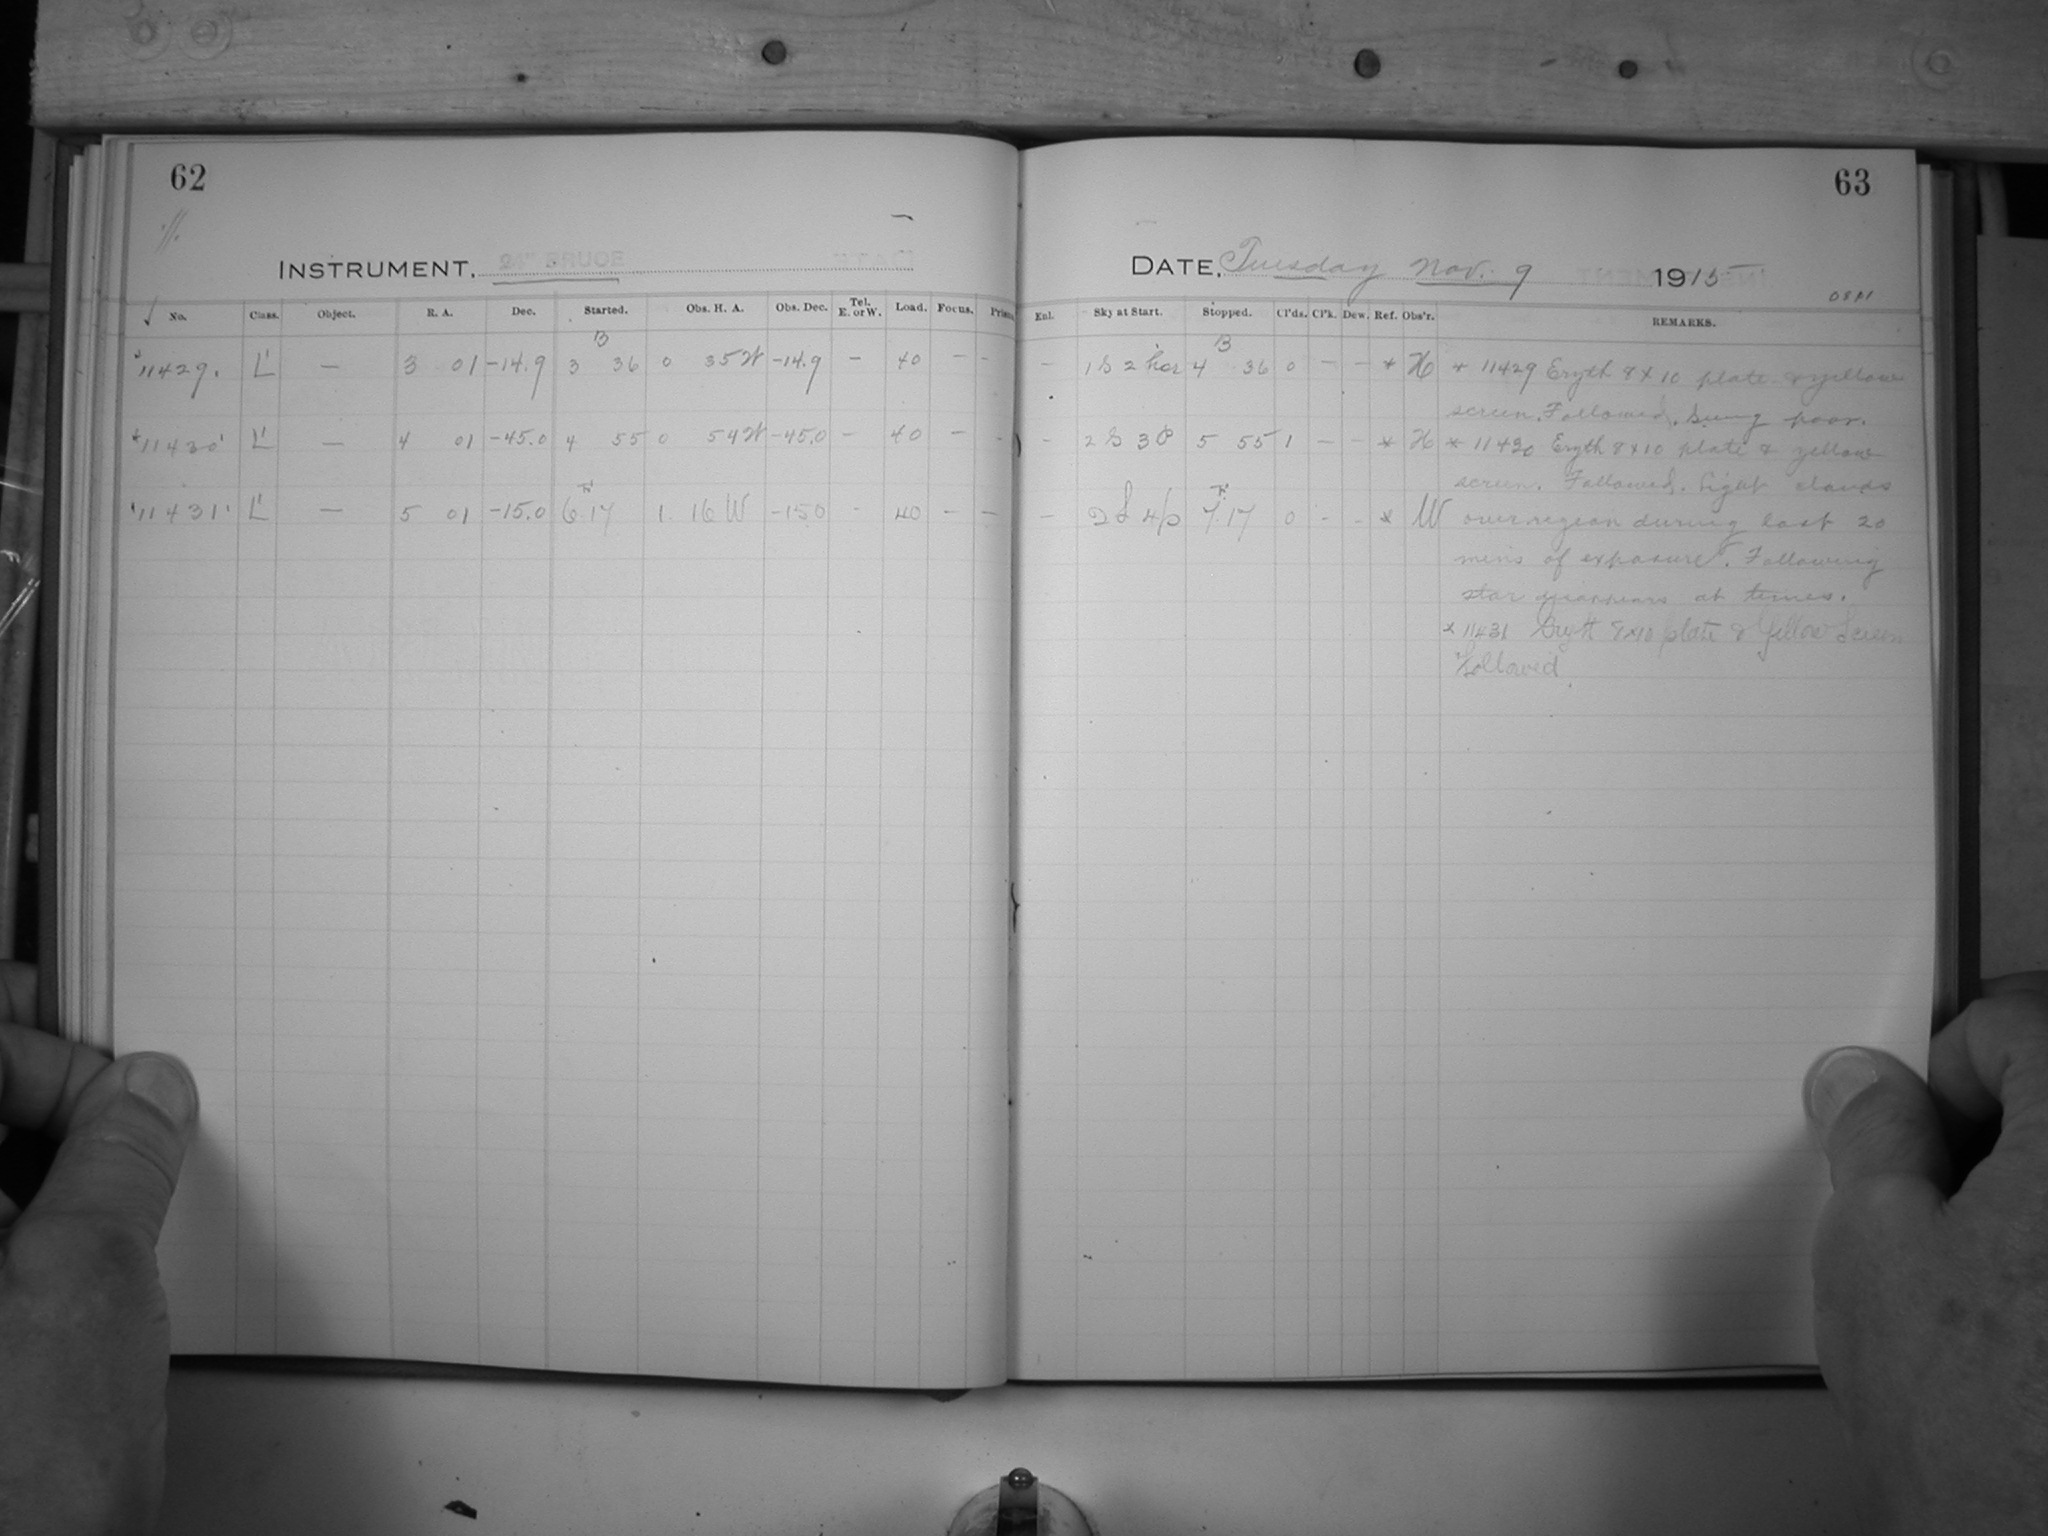 62
INSTRUMENT, 24" BRUCE
No. Class. Object. R. A. Dec. Started. Obs. H. A. Obs. Dec. Tel. E. or W. Load. Focus. Prism.
B
11429. L' — 3 01 -14.9 3 36 0 35 W -14.9 — 40 — -
*11430 L' — 4 01 -45.0 4 55 0 54 W -45.0 — 40 — -
F
11431 L' — 5 01 -15.0 6 17 1 16 W -15.0 - 40 - —
63
DATE, Tuesday Nov. 9 1915
Enl. Sky at Start. Stopped. Cl'ds. Cl'k. Dew. Ref. Obs'r. REMARKS.
B
— 1 S 2 hor 4 36 0 — — * H * 11429 Eryth 8 x 10 plate & yellow
screen. Followed. Seeing poor.
- 2 S 3 P 5 55 1 — - * H * 11430 Eryth 8x10 plate & yellow
screen. Followed. Light clouds
F
— 2 S 4 p 7 17 0 - - * W over region during last 20
mins of exposure. Following
star disappears at times.
* 11431 Eryth 8x10 plate & Yellow Screen
Followed